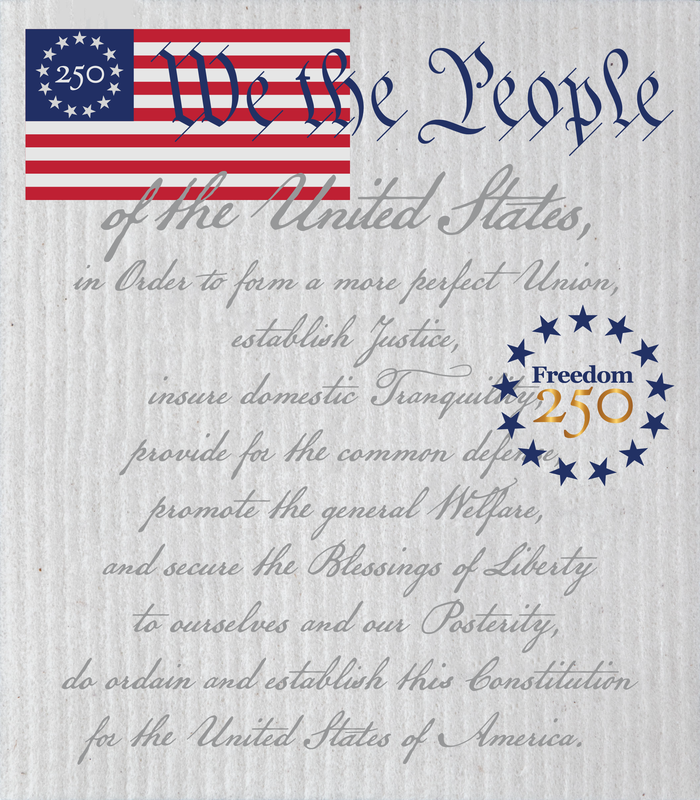 250
We the People
of the United States,
in Order to form a more perfect Union,
establish Justice,
insure domestic Tranquility,
Freedom
250
provide for the common defense,
promote the general Welfare,
and secure the Blessings of Liberty
to ourselves and our Posterity,
do ordain and establish this Constitution
for the United States of America.